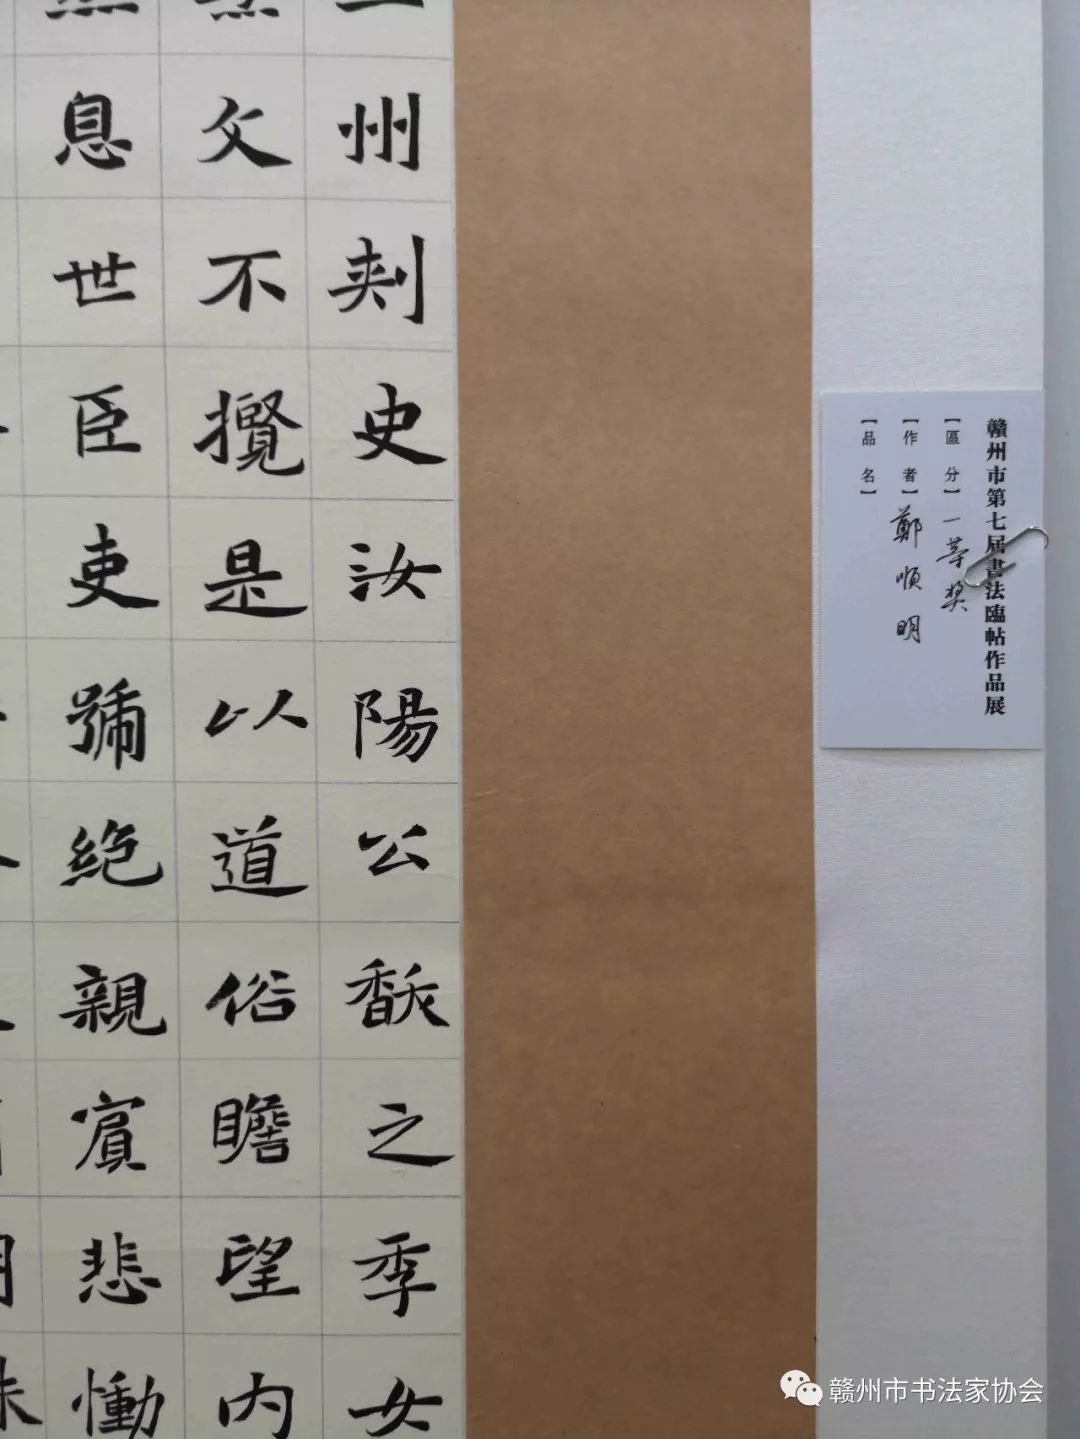 州刾史汝陽公馛之季女
父不攬是以道俗瞻望内
息世臣吏號絶親賔悲慟
贛州市第七届書法臨帖作品展
【區 分】一等奖
【作 者】鄭順明
【品 名】
赣州市书法家协会